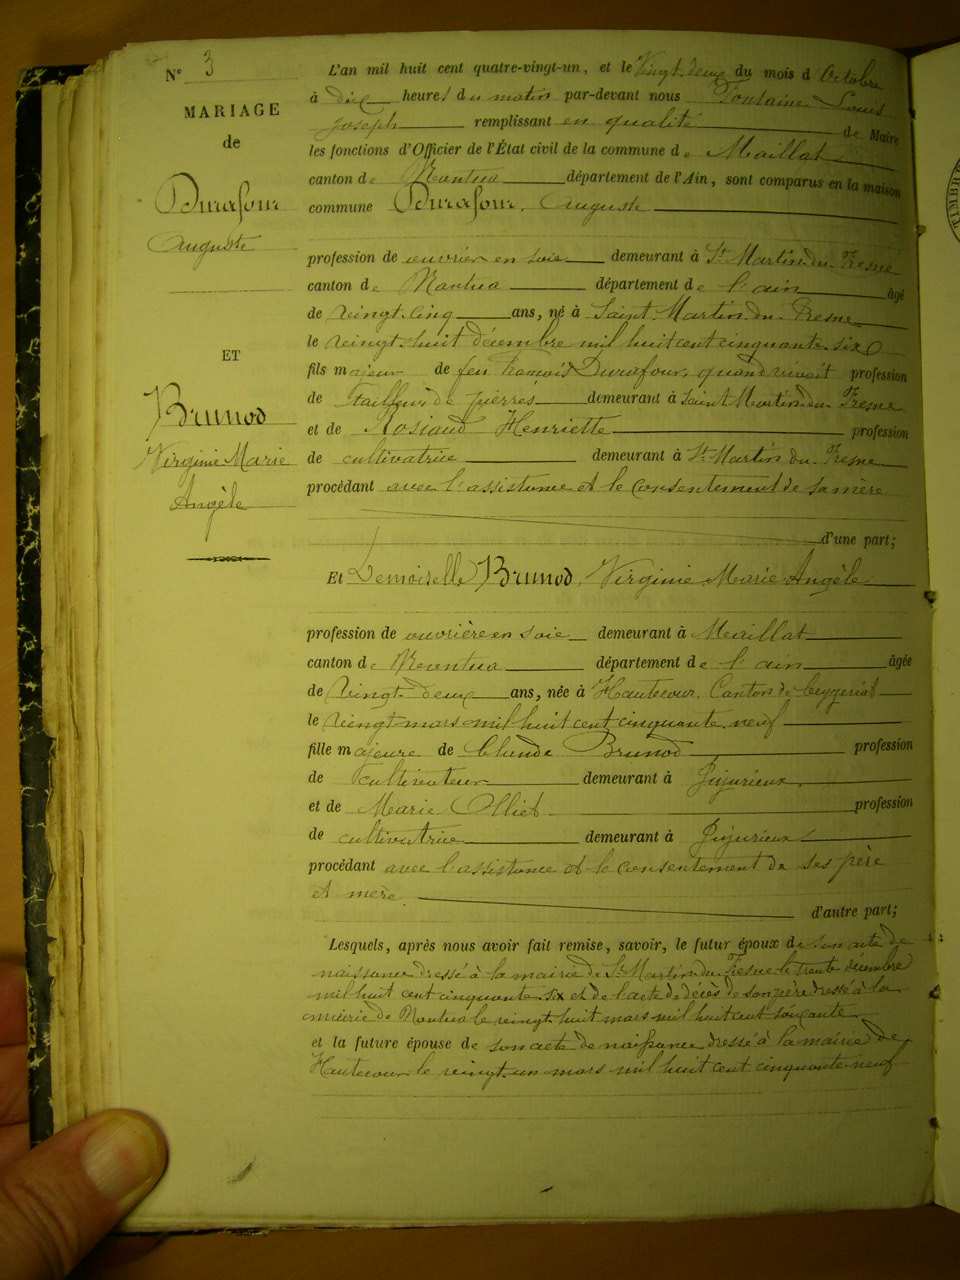 N° 3
MARIAGE
de
Durafour
Auguste
ET
Brunod
Virginie Marie
Angèle
L'an mil huit cent quatre-vingt-un, et le Vingt-deux du mois d'Octobre
à dix heures du matin par-devant nous Fontaine Louis
Joseph remplissant en qualité de Maire
les fonctions d'Officier de l'État civil de la commune de Maillat
canton de Nantua département de l'Ain, sont comparus en la maison
commune Durafour, Auguste
profession de ouvrier en soie demeurant à St Martin-du-Fresne
canton de Nantua département de l'ain âgé
de vingt-cinq ans, né à Saint-Martin-du-Fresne
le vingt-huit décembre mil huit cent cinquante-six
fils majeur de feu François Durafour, quand vivait profession
de tailleur de pierres demeurant à Saint Martin-du-Fresne
et de Rosiaud Henriette profession
de cultivatrice demeurant à St-Martin du-Fresne
procédant avec l'assistance et le consentement de sa mère
d'une part;
Et Demoiselle Brunod, Virginie Marie Angèle
profession de ouvrière en soie demeurant à Maillat
canton de Nantua département de l'ain âgée
de vingt-deux ans, née à Hautecour, Canton de Ceyzeriat
le vingt mars mil huit cent cinquante-neuf
fille majeure de Claude Brunod profession
de cultivateur demeurant à Jujurieux
et de Marie Olliet profession
de cultivatrice demeurant à Jujurieux
procédant avec l'assistance et le consentement de ses père
et mère
d'autre part;
Lesquels, après nous avoir fait remise, savoir, le futur époux de son acte de
naissance dressé à la mairie de St-Martin-du-Fresne le trente décembre
mil huit cent cinquante-six et de l'acte de décès de son père dressé à la
mairie de Nantua le vingt huit mars mil huit cent soixante
et la future épouse de son acte de naissance dressé à la mairie de
Hautecour le vingt-un mars mil huit cent cinquante-neuf
TIMBRE